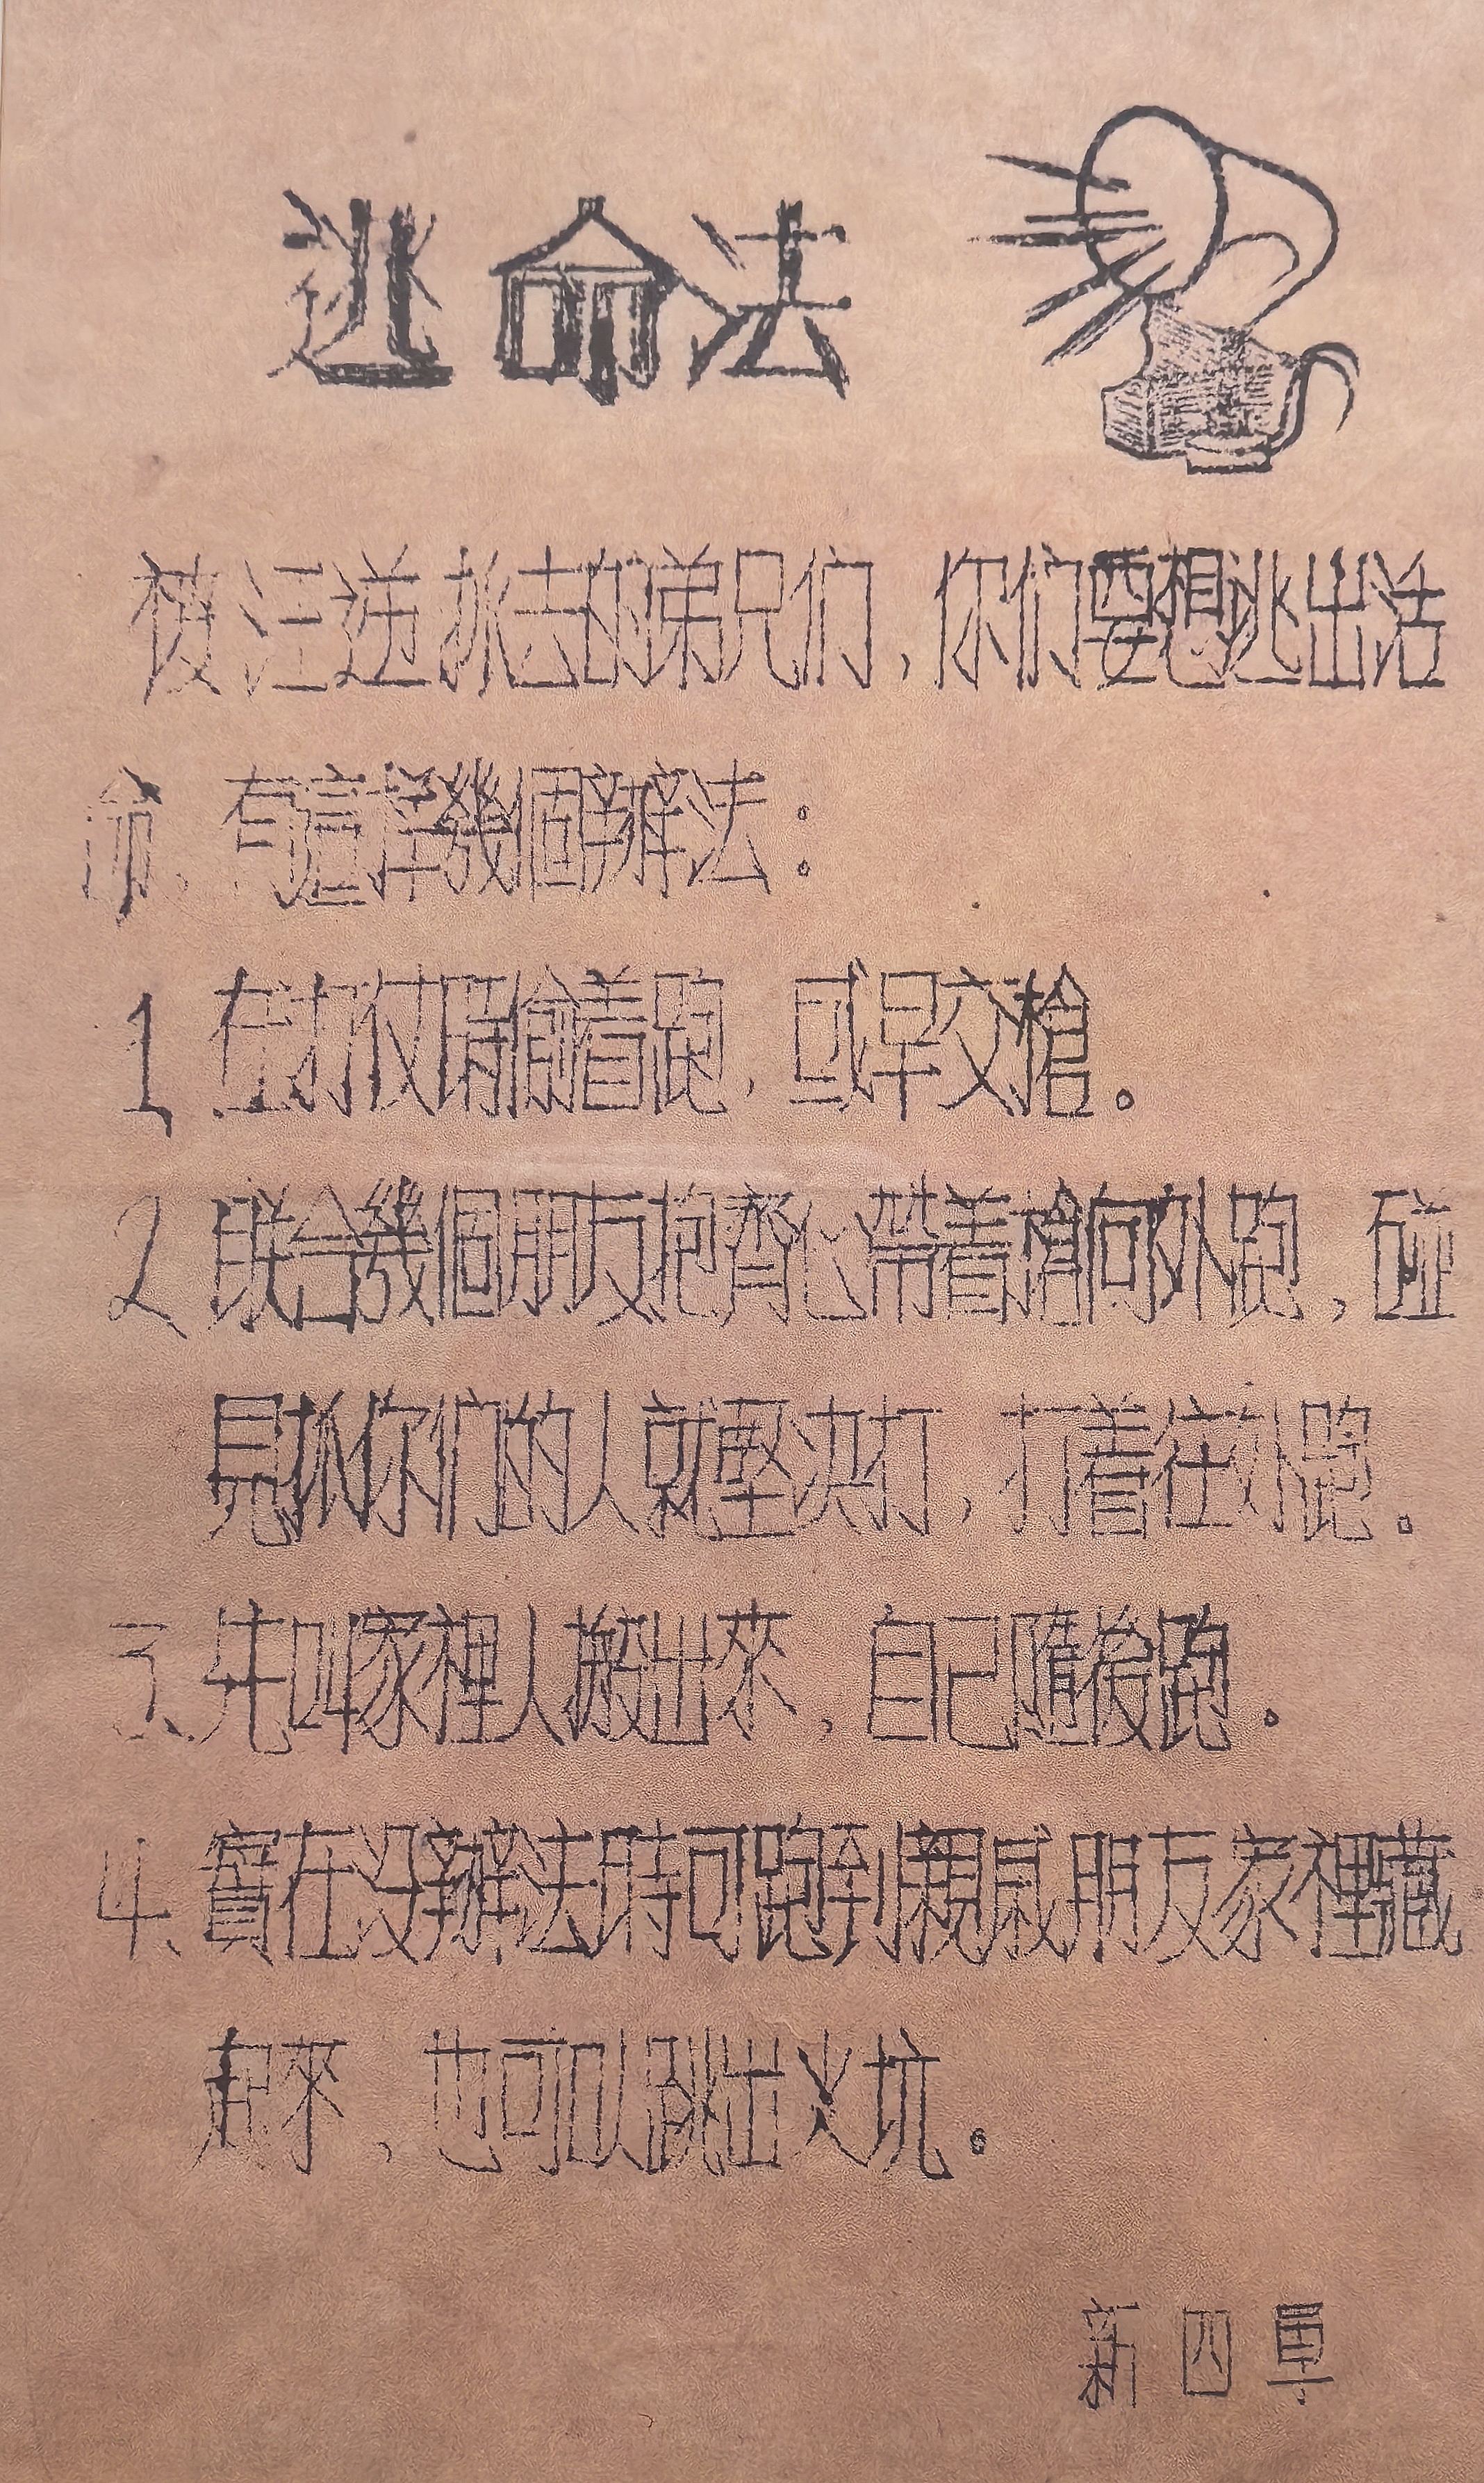 逃命法
被汪逆抓去的弟兄们，你们要想逃出活
命，有這样幾個辦法：
1 在打仗時偷着跑，或早交槍。
2 联合幾個朋友抱齊心帶着槍向外跑，碰
見抓你们的人就堅决打，打着往外跑．
3、先叫家裡人搬出來，自己隨後跑．
4、實在没辦法時可跑到親戚朋友家裡藏
起來，也可以跳出火坑。
新四軍